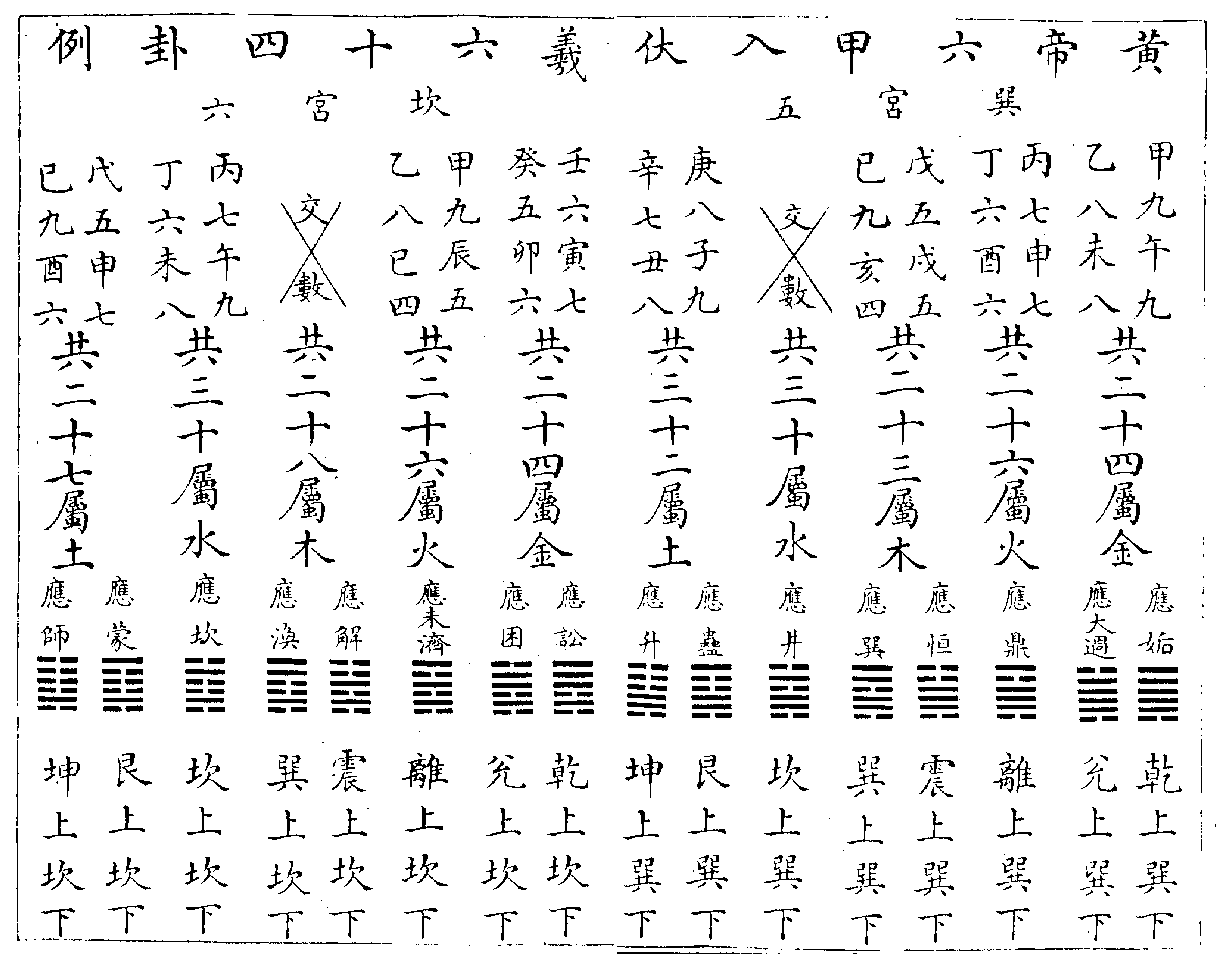 黄帝六甲入伏羲六十四卦例
巽宮五
甲九午九
乙八未八
共二十四屬金
應姤
乾上巽下
應大過
兊上巽下
丙七申七
丁六酉六
共二十六屬火
應鼎
離上巽下
戊五戌五
己九亥四
共二十三屬木
應恒
震上巽下
應巽
巽上巽下
交數
共三十屬水
應井
坎上巽下
庚八子九
辛七丑八
共三十二屬土
應蠱
艮上巽下
應升
坤上巽下
坎宮六
壬六寅七
癸五卯六
共二十四屬金
應訟
乾上坎下
應困
兊上坎下
甲九辰五
乙八巳四
共二十六屬火
應未濟
離上坎下
交數
共二十八屬木
應解
震上坎下
應渙
巽上坎下
丙七午九
丁六未八
共三十屬水
應坎
坎上坎下
戊五申七
己九酉六
共二十七屬土
應蒙
艮上坎下
應師
坤上坎下